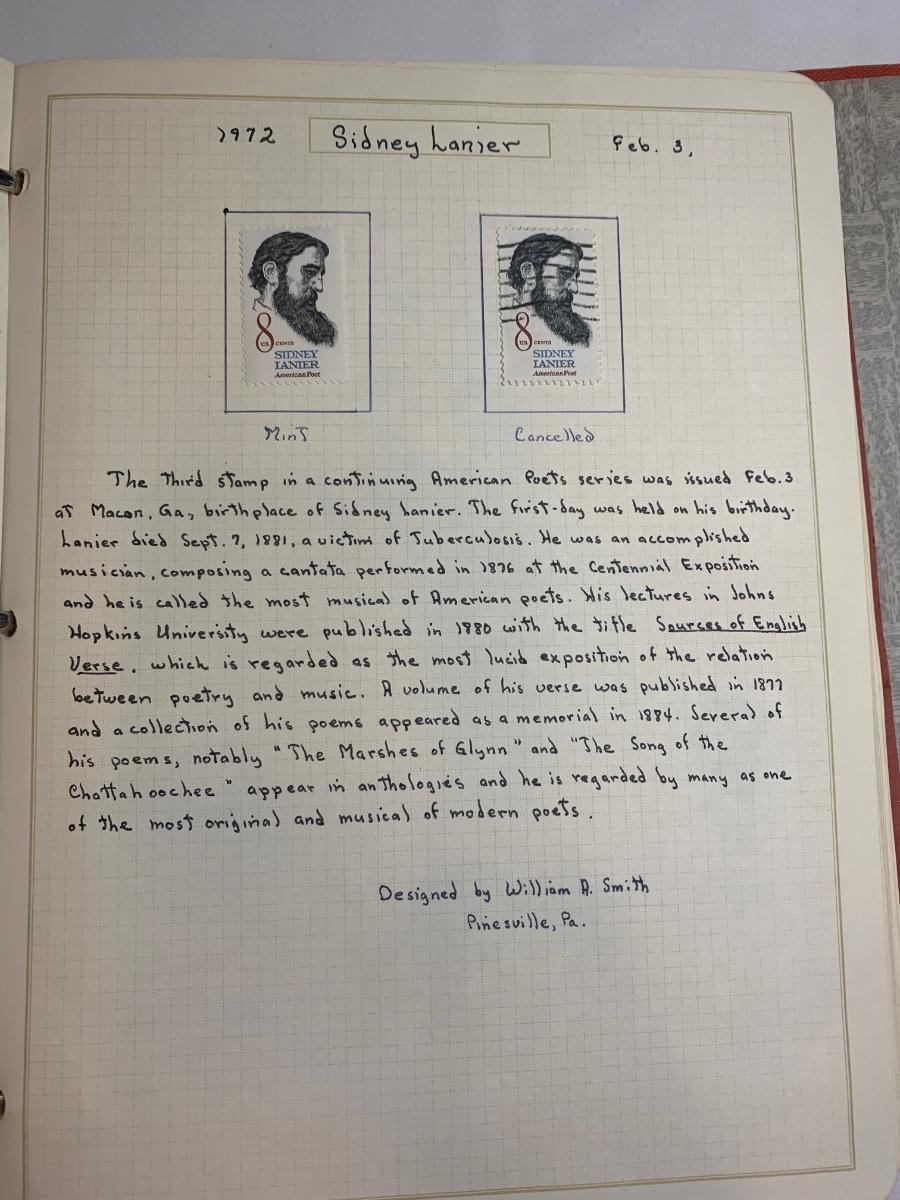 1972 Sidney Lanier Feb. 3,
8
U.S. CENTS
SIDNEY
LANIER
American Poet
8
U.S. CENTS
SIDNEY
LANIER
American Poet
Mint
Cancelled
The Third stamp in a continuing American Poets series was issued Feb. 3
at Macon, Ga., birthplace of Sidney Lanier. The first-day was held on his birthday.
Lanier died Sept. 7, 1881, a victim of Tuberculosis. He was an accomplished
musician, composing a cantata performed in 1876 at the Centennial Exposition
and he is called the most musical of American poets. His lectures in Johns
Hopkins University were published in 1880 with the title Sources of English
Verse, which is regarded as the most lucid exposition of the relation
between poetry and music. A volume of his verse was published in 1877
and a collection of his poems appeared as a memorial in 1884. Several of
his poems, notably "The Marshes of Glynn" and "The Song of the
Chattahoochee" appear in anthologies and he is regarded by many as one
of the most original and musical of modern poets.
Designed by William A. Smith
Pinesville, Pa.